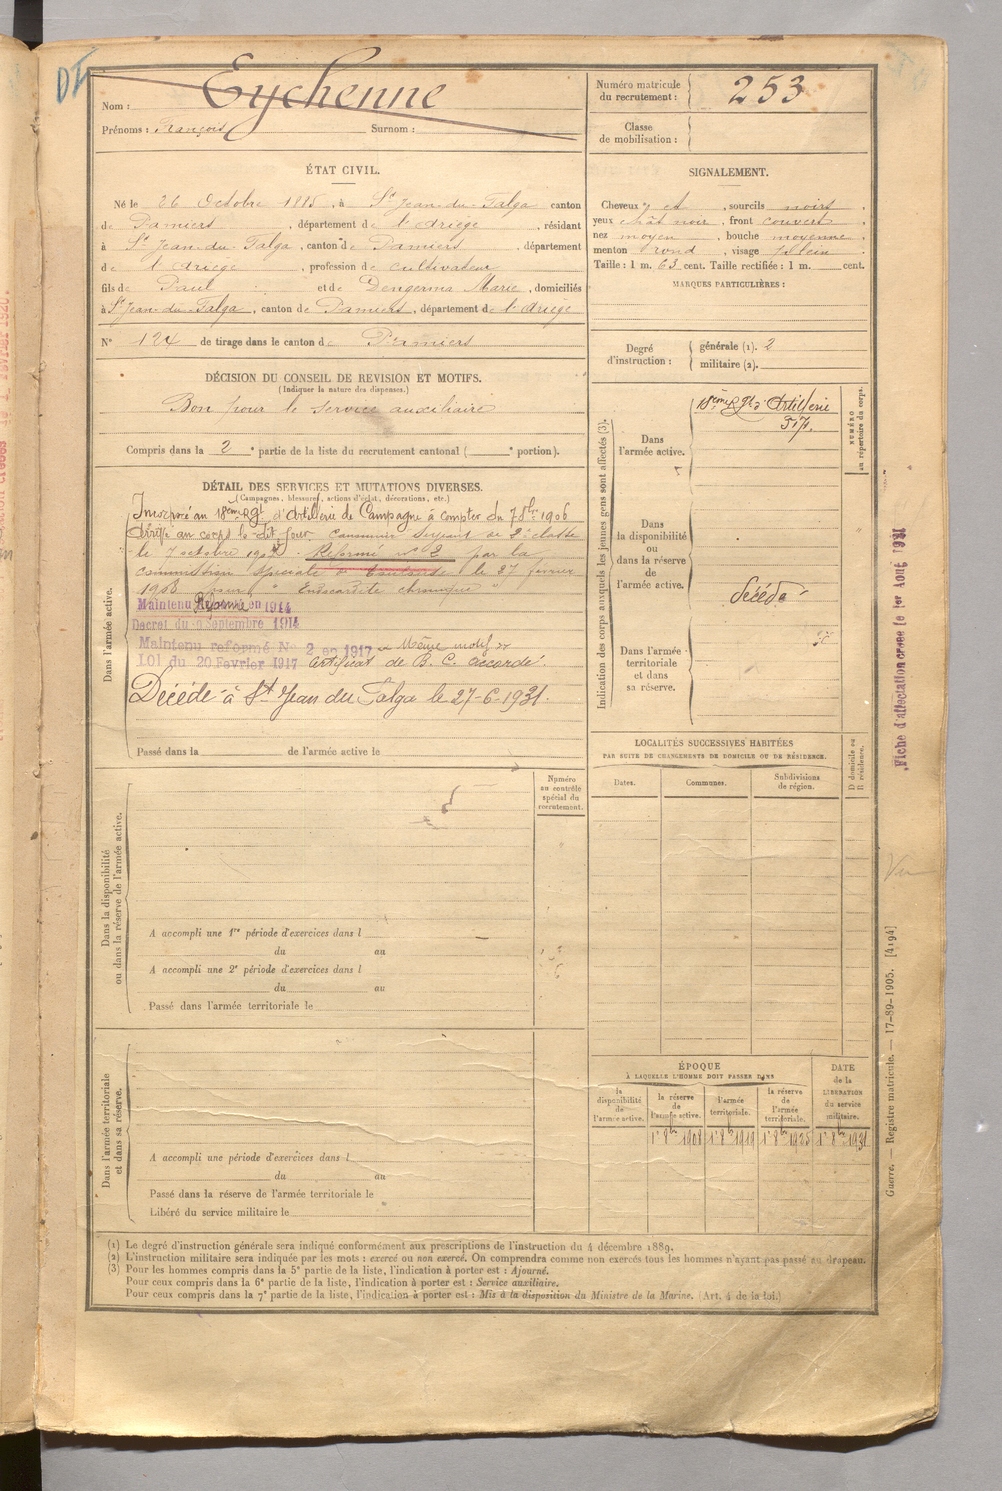 DI
Nom : Eychenne
Prénoms : François Surnom :
Numéro matricule du recrutement : 253
Classe de mobilisation :
ÉTAT CIVIL.
Né le 26 Octobre 1885, à St Jean-du-Falga canton
de Pamiers, département de l'Ariège, résidant
à St Jean-du-Falga, canton de Pamiers, département
de l'Ariège, profession de cultivateur
fils de Paul et de Dengerma Marie, domiciliés
à St Jean-du-Falga, canton de Pamiers, département de l'Ariège
N° 124 de tirage dans le canton de Pamiers
SIGNALEMENT.
Cheveux et, sourcils noirs
yeux chât noir, front couvert
nez moyen, bouche moyenne,
menton rond, visage plein
Taille : 1 m. 63 cent. Taille rectifiée : 1 m. cent.
MARQUES PARTICULIÈRES :
Degré d'instruction : générale (1). 2
militaire (2).
DÉCISION DU CONSEIL DE REVISION ET MOTIFS.
(Indiquer la nature des dispenses.)
Bon pour le service auxiliaire
Compris dans la 2e partie de la liste du recrutement cantonal ( e portion).
DÉTAIL DES SERVICES ET MUTATIONS DIVERSES.
(Campagnes, blessures, actions d'éclat, décorations, etc.)
Dans l'armée active.
Incorporé au 18ème Rgt d'Artillerie de Campagne à compter du 7 8bre 1906
Arrivé au corps le dit jour. Canonnier servant de 2e classe
le 7 octobre 190 . Réformé n° 2 par la
commission spéciale de Toulouse le 27 février
1908 pour "Endocardite chronique"
Maintenu Réformé en 1914
Decret du 9 Septembre 1914
Maintenu reformé N° 2 en 1917 Même motif
Loi du 20 Fevrier 1917 Certificat de B. C. accordé.
Décédé à St Jean du Falga le 27-6-1931.
Passé dans la de l'armée active le
Indication des corps auxquels les jeunes gens sont affectés (3).
NUMÉRO au répertoire du corps.
Dans l'armée active.
18ème Rgt d'Artillerie
Dans la disponibilité ou dans la réserve de l'armée active.
Décédé
Dans l'armée territoriale et dans sa réserve.
Fiche d'affectation créée le 1er Août 1931
LOCALITÉS SUCCESSIVES HABITÉES
PAR SUITE DE CHANGEMENTS DE DOMICILE OU DE RÉSIDENCE.
Dates. Communes. Subdivisions de région. D domicile ou R résidence.
Numéro au contrôle spécial du recrutement.
Dans la disponibilité ou dans la réserve de l'armée active.
A accompli une 1re période d'exercices dans l
du au
A accompli une 2e période d'exercices dans l
du au
Passé dans l'armée territoriale le
Dans l'armée territoriale et dans sa réserve.
A accompli une période d'exercices dans l
du au
Passé dans la réserve de l'armée territoriale le
Libéré du service militaire le
ÉPOQUE
À LAQUELLE L'HOMME DOIT PASSER DANS
la disponibilité de l'armée active.
la réserve de l'armée active. 1er 8bre 1908
l'armée territoriale. 1er 8bre 1919
la réserve de l'armée territoriale. 1er 8bre 1925
DATE de la LIBÉRATION du service militaire. 1er 8bre 1931
Guerre. — Registre matricule. — 17-89-1905. [4194]
(1) Le degré d'instruction générale sera indiqué conformément aux prescriptions de l'instruction du 4 décembre 1889.
(2) L'instruction militaire sera indiquée par les mots : exercé ou non exercé. On comprendra comme non exercés tous les hommes n'ayant pas passé au drapeau.
(3) Pour les hommes compris dans la 5e partie de la liste, l'indication à porter est : Ajourné.
Pour ceux compris dans la 6e partie de la liste, l'indication à porter est : Service auxiliaire.
Pour ceux compris dans la 7e partie de la liste, l'indication à porter est : Mis à la disposition du Ministre de la Marine. (Art. 4 de la loi.)